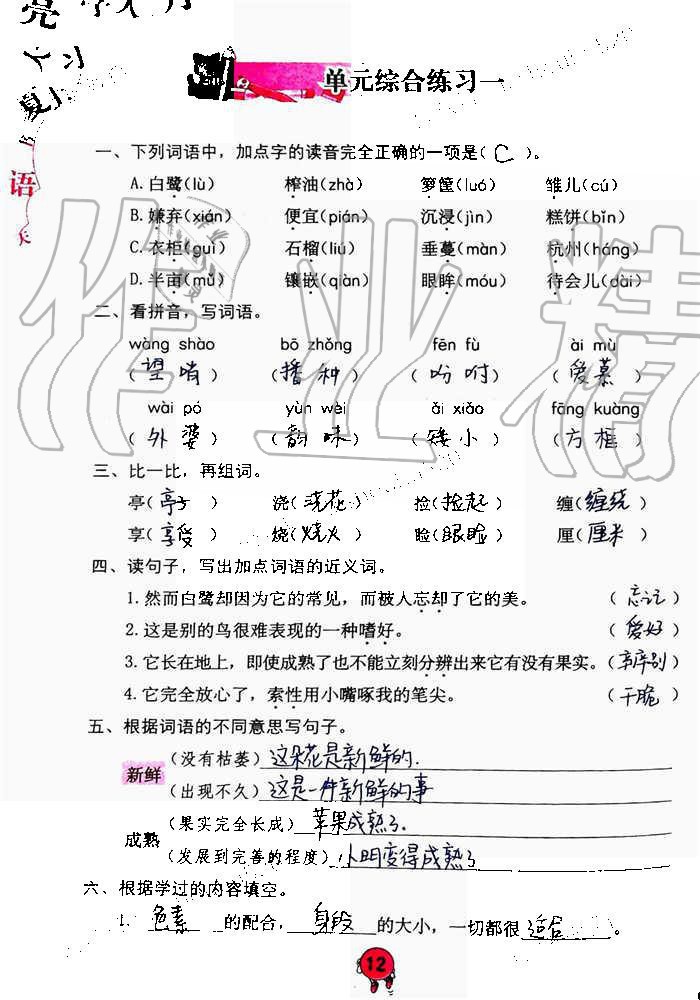 单元综合练习一
一、下列词语中，加点字的读音完全正确的一项是（ C ）。
A.白鹭(lù) 榨油(zhà) 箩筐(luó) 雏儿(cú)
B.嫌弃(xián) 便宜(pián) 沉浸(jìn) 糕饼(bǐn)
C.衣柜(guì) 石榴(liú) 垂蔓(màn) 杭州(háng)
D.半亩(mǔ) 镶嵌(qiàn) 眼眸(móu) 待会儿(dài)
二、看拼音，写词语。
wàng shào bō zhǒng fēn fù ài mù
（望哨） （播种） （吩咐） （爱慕）
wài pó yùn wèi ǎi xiǎo fāng kuàng
（外婆） （韵味） （矮小） （方框）
三、比一比，再组词。
亭（亭子） 浇（浇花） 捡（捡起） 缠（缠绕）
享（享受） 烧（烧火） 脸（眼睑） 厘（厘米）
四、读句子，写出加点词语的近义词。
1.然而白鹭却因为它的常见，而被人忘却了它的美。 （忘记）
2.这是别的鸟很难表现的一种嗜好。 （爱好）
3.它长在地上，即使成熟了也不能立刻分辨出来它有没有果实。（辨别）
4.它完全放心了，索性用小嘴啄我的笔尖。 （干脆）
五、根据词语的不同意思写句子。
新鲜
（没有枯萎）这朵花是新鲜的.
（出现不久）这是一件新鲜的事
成熟
（果实完全长成）苹果成熟了.
（发展到完善的程度）小明变得成熟了
六、根据学过的内容填空。
1. 色素 的配合，身段 的大小，一切都很 适合 。
12